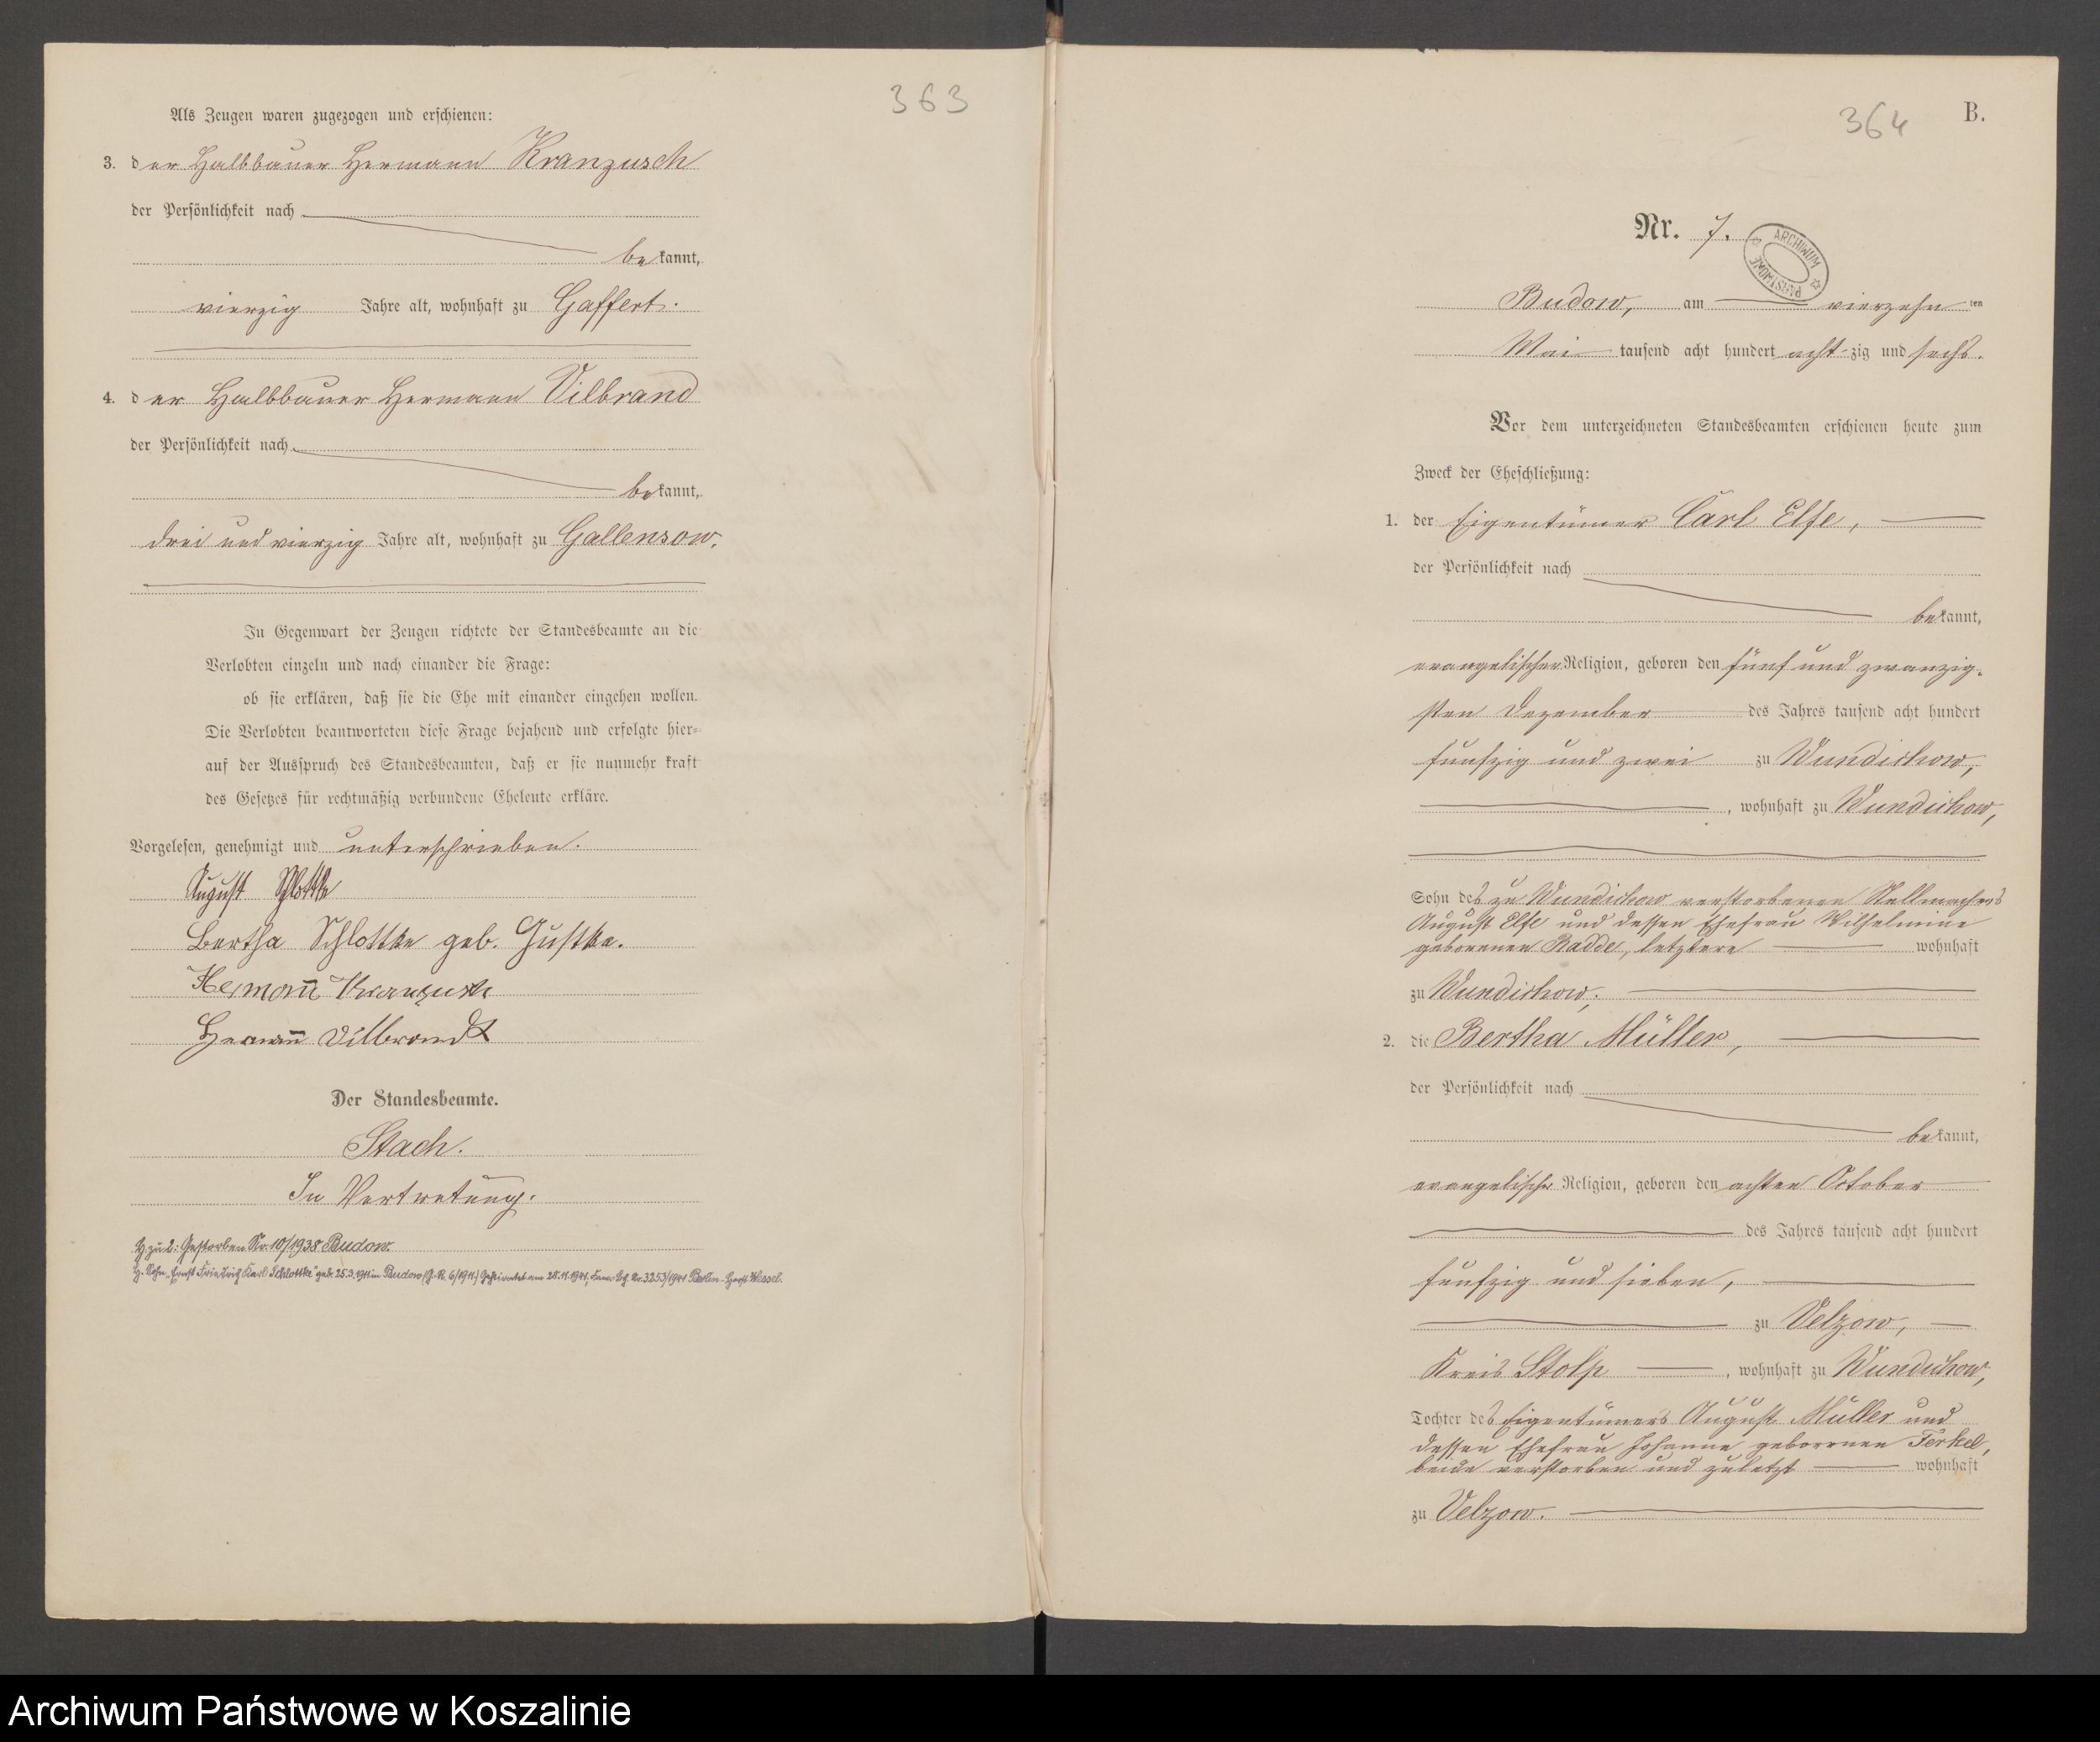 363
Als Zeugen waren zugezogen und erschienen:
3. der Halbbauer Hermann Kranzusch
der Persönlichkeit nach
bekannt,
vierzig Jahre alt, wohnhaft zu Gaffert.
4. der Halbbauer Hermann Vilbrand
der Persönlichkeit nach
bekannt,
drei und vierzig Jahre alt, wohnhaft zu Gallensow.
In Gegenwart der Zeugen richtete der Standesbeamte an die
Verlobten einzeln und nach einander die Frage:
ob sie erklären, daß sie die Ehe mit einander eingehen wollen.
Die Verlobten beantworteten diese Frage bejahend und erfolgte hier-
auf der Ausspruch des Standesbeamten, daß er sie nunmehr kraft
des Gesetzes für rechtmäßig verbundene Eheleute erkläre.
Vorgelesen, genehmigt und unterschrieben.
August Schlottke
Bertha Schlottke geb. Gustke.
Hermann Kranzusch
Hermann Vilbrandt
Der Standesbeamte.
Stach.
In Vertretung.
H. zu 2: Gestorben Nr. 10/1938 Budow.
H. Sohn „Ernst Friedrich Karl Schlottke" geb. 25.3.1911 in Budow (G.R. 6/1911) Geheiratet am 28.11.1941, Nr. 3253/1941 Berlin-Horst Wessel.
364 B.
Nr. 7.
ARCHIWUM PAŃSTWOWE
Budow, am vierzehn ten
Mai tausend acht hundert acht-zig und sechs.
Vor dem unterzeichneten Standesbeamten erschienen heute zum
Zweck der Eheschließung:
1. der Eigentümer Carl Elfe,
der Persönlichkeit nach
bekannt,
evangelischer Religion, geboren den fünf und zwanzig-
sten Dezember des Jahres tausend acht hundert
funfzig und zwei zu Wundichow,
, wohnhaft zu Wundichow,
Sohn des zu Wundichow verstorbenen Stellmachers
August Elfe und dessen Ehefrau Wilhelmine
geborenen Radde, letztere wohnhaft
zu Wundichow;
2. die Bertha Müller,
der Persönlichkeit nach
bekannt,
evangelischer Religion, geboren den achten October
des Jahres tausend acht hundert
funfzig und sieben,
zu Velzow,
Kreis Stolp , wohnhaft zu Wundichow,
Tochter des Eigentümers August Müller und
dessen Ehefrau Johanne geborenen Ferkel,
beide verstorben und zuletzt wohnhaft
zu Velzow.
Archiwum Państwowe w Koszalinie